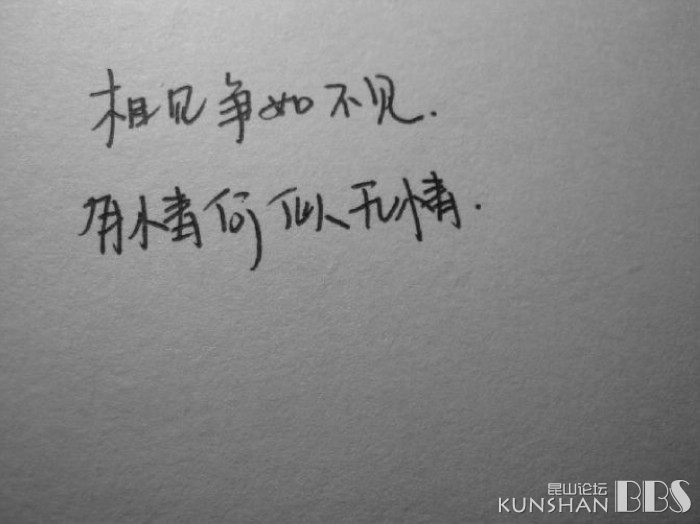 相见争如不见.
有情何似无情.
昆山论坛
KUNSHAN BBS